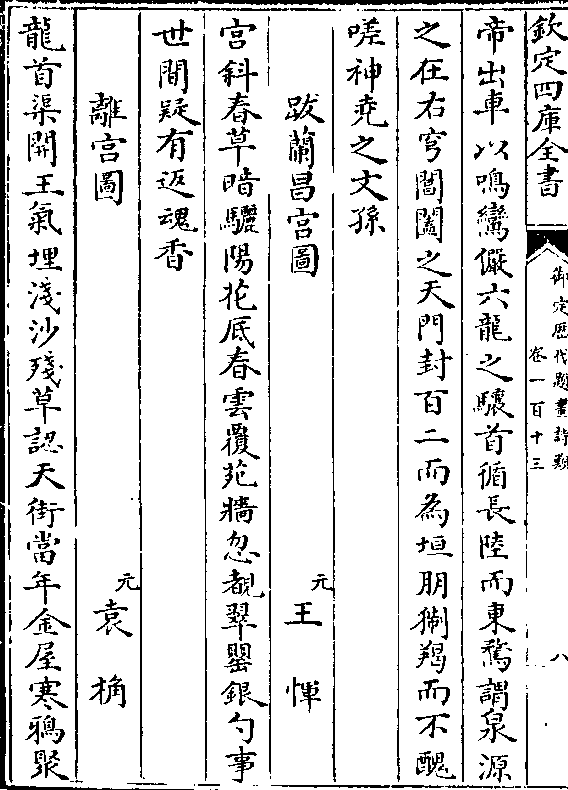 欽定四庫全書
御定歷代題畫詩類
卷一百十三
八
帝出車以鳴鸞儼六龍之驤首循長陸而東騖謂泉源
之在右穹閶闔之天門封百二而為垣朋猘羯而不醜
嗟神堯之文孫
跋蘭昌宮圖
元王惲
宮斜春草暗驪陽花底春雲覆苑牆忽覩翠罌銀勺事
世間疑有返魂香
離宮圖
元袁桷
龍首渠開王氣埋淺沙殘草認天街當年金屋寒鴉聚